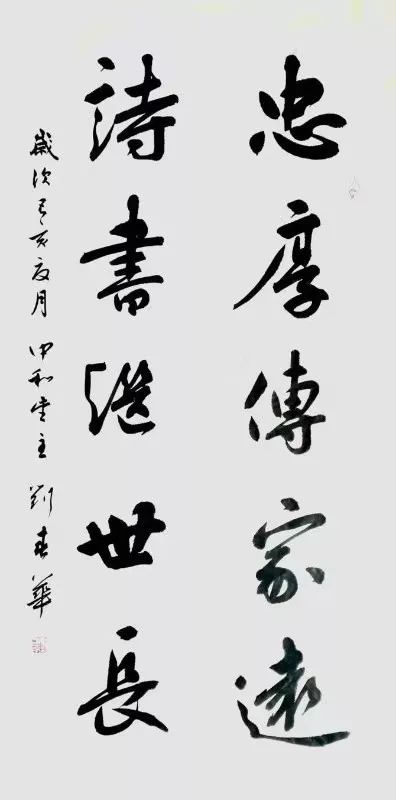 忠厚傳家遠
詩書繼世長
歲次己亥夏月 中和堂主 劉春華